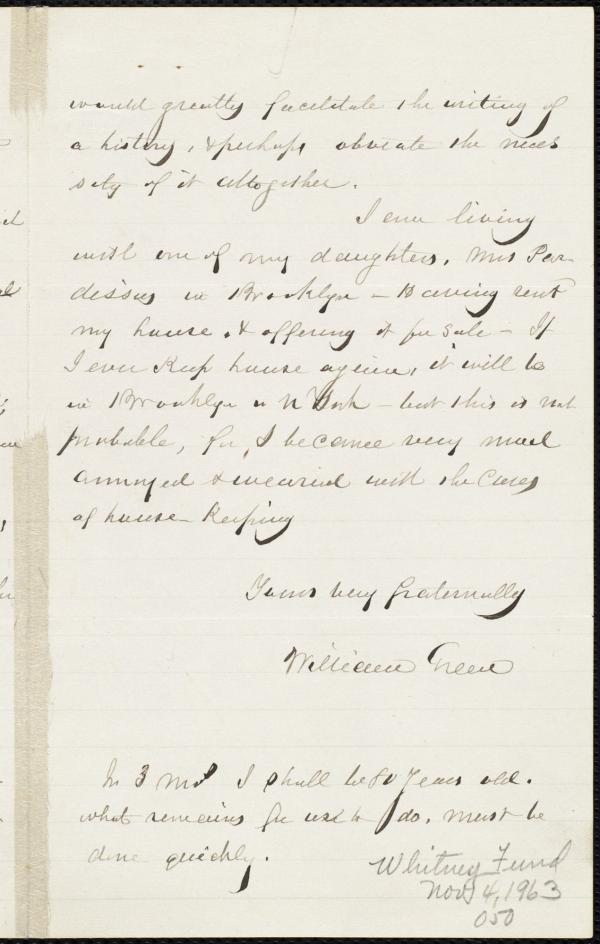 would greatly facilitate the writing of
a history, & perhaps obviate the neces
sity of it altogether.
I am living
with one of my daughters, Mrs Par-
dissus in Brooklyn - Having rent
my house, & offering it for sale - If
I ever Keep house again, it will be
in Brooklyn or N York - but this is not
probable, for, I became very much
annoyed & wearied with the Cares
of house-Keeping
Yours very fraternally
William Green
In 3 mos I shall be 80 Years old.
what remains for us to do, must be
done quickly.
Whitney Fund
Nov 4, 1963
050